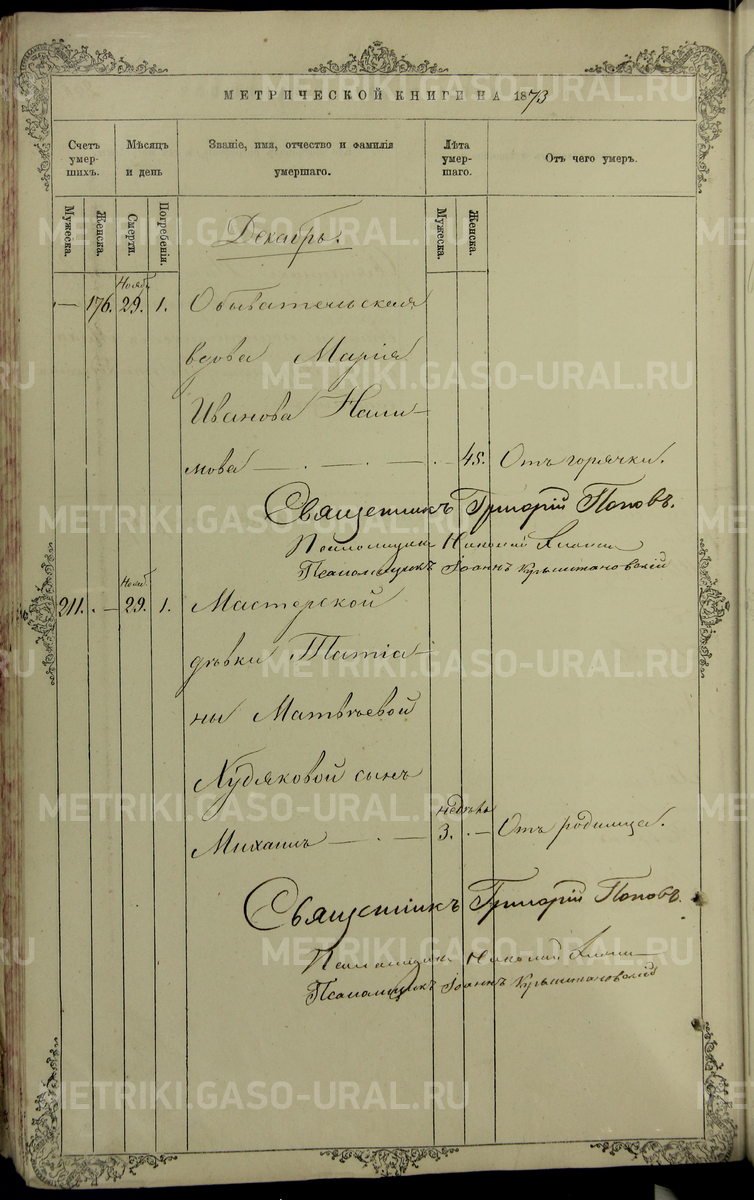 МЕТРИЧЕСКОЙ КНИГИ НА 1873
Счетъ умер- шихъ.
Мѣсяцъ и день
Званіе, имя, отчество и фамилія умершаго.
Лѣта умер- шаго.
Отъ чего умеръ.
Мужеска.
Женска.
Смерти.
Погребенія.
Мужеска.
Женска.
Декабрь.
Ноябр
— 176. 29. 1. Обывательская
вдова Марія
Иванова Нали-
мова 45. Отъ горячки.
Священникъ Григорій Поповъ.
Псаломщикъ Николай
Псаломщикъ Іоаннъ
Нояб.
211. — 29. 1. Мастерской
дѣвки Татіа-
ны Матвѣевой
Худяковой сынъ
недѣли
Михаилъ 3. — Отъ родимца.
Священникъ Григорій Поповъ.
Псаломщикъ Николай
Псаломщикъ Іоаннъ
METRIKI.GASO-URAL.RU